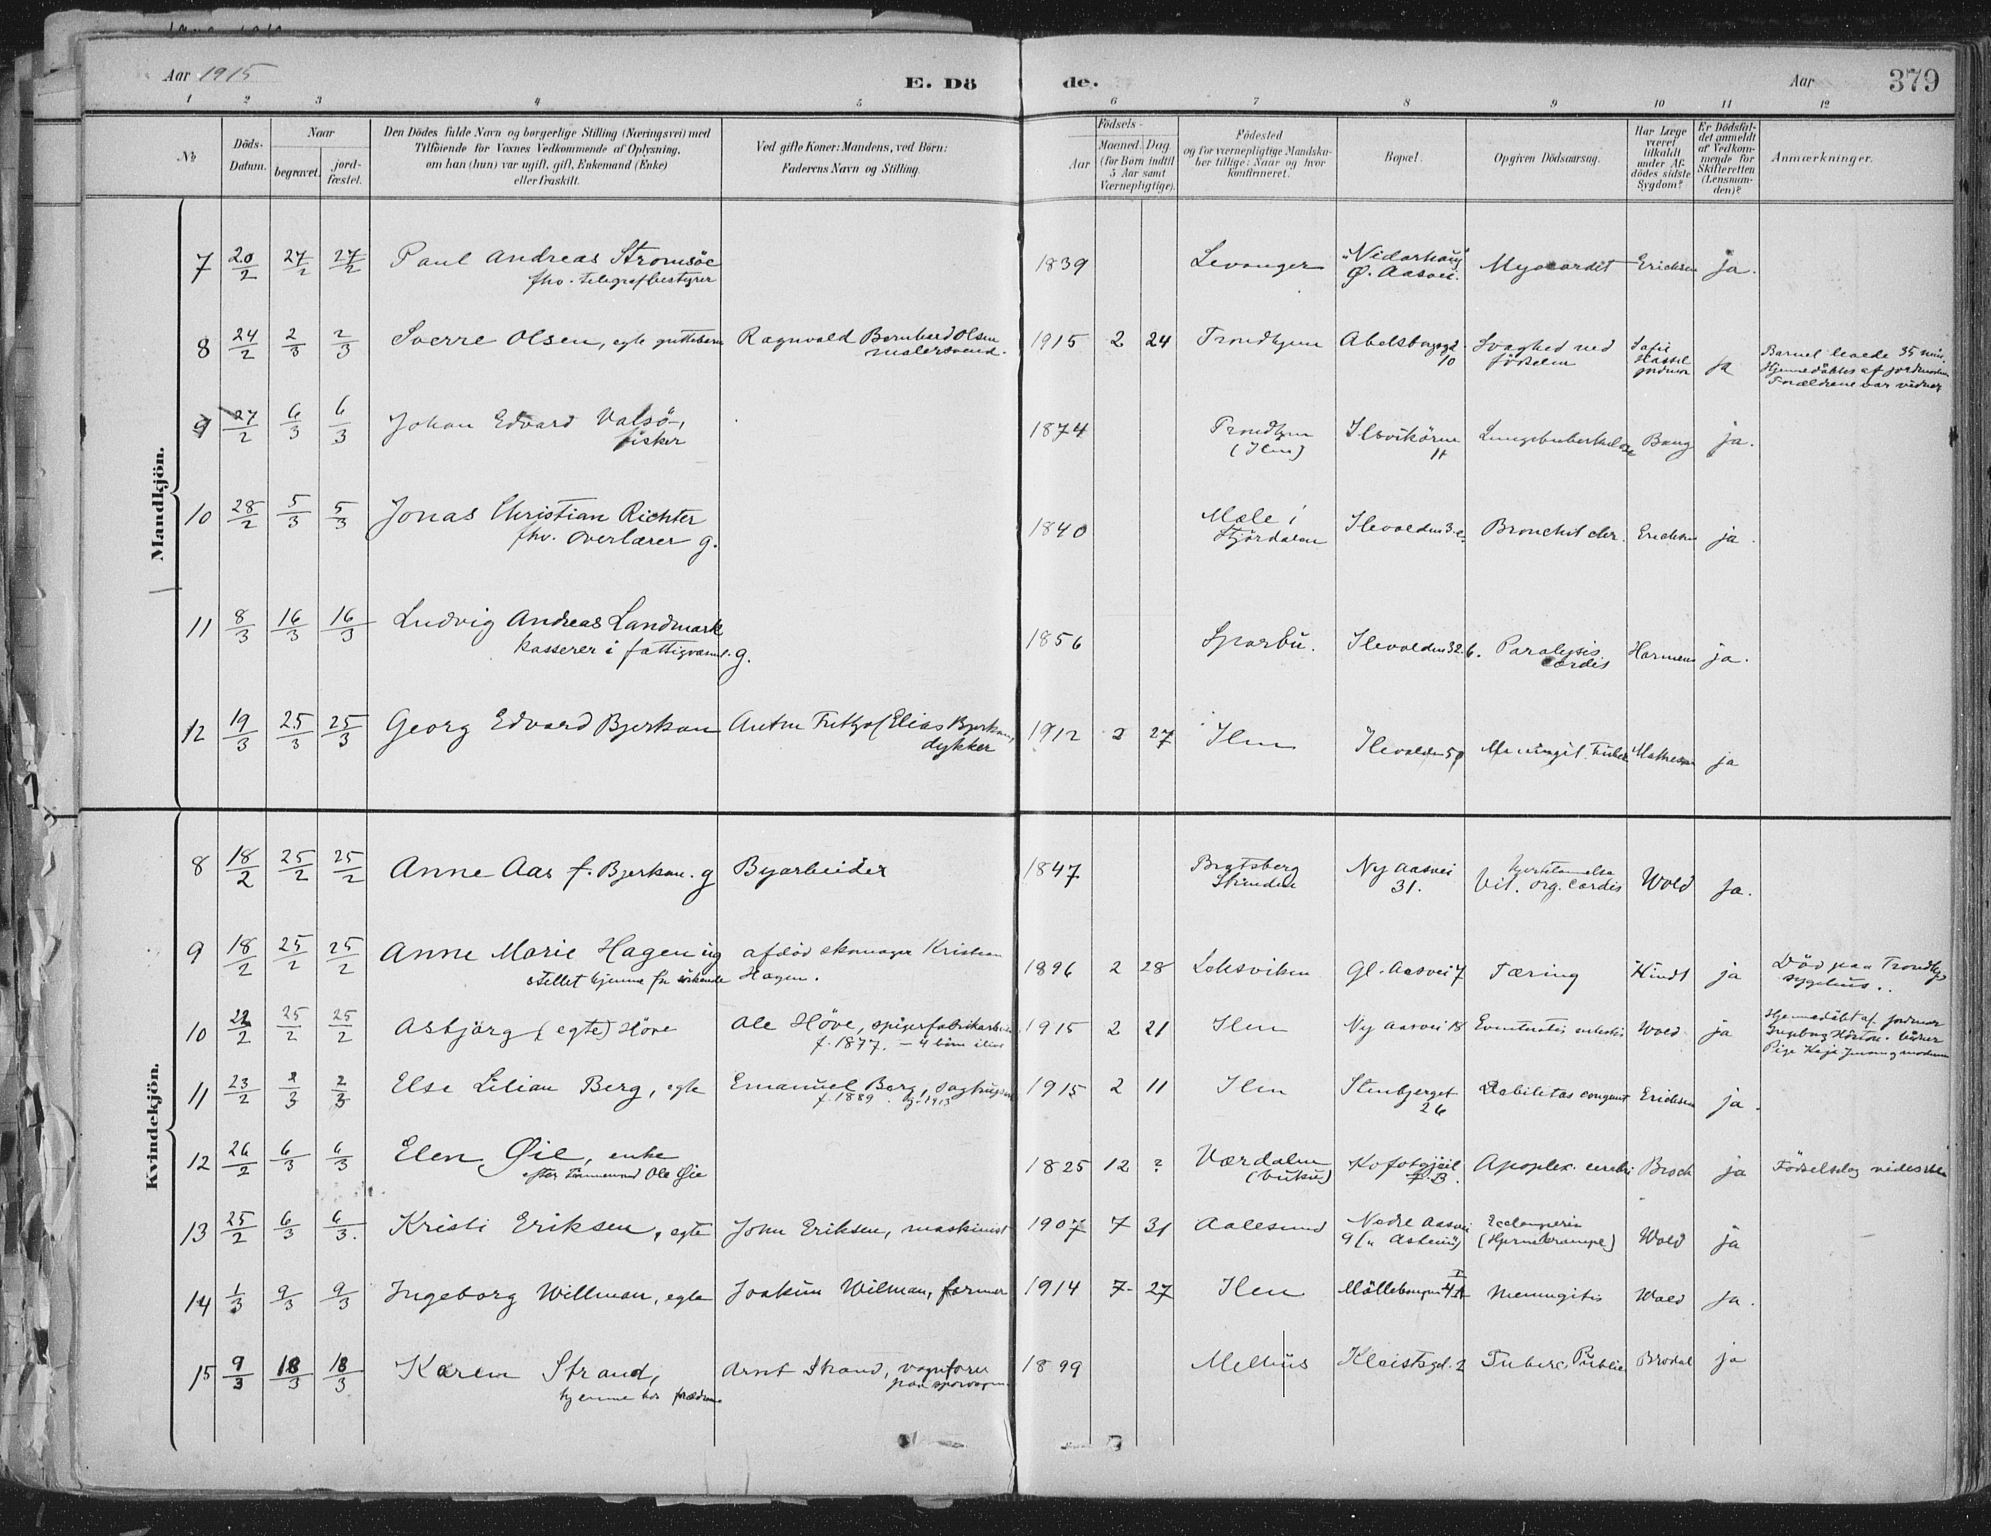 Aar 1915 E. Dö de. Aar 379
1 2 3 4 5 6 7 8 9 10 11 12
№
Döds-
Datum.
Naar
begravet.
jord-
fæstet.
Den Dödes fulde Navn og borgerlige Stilling (Næringsvei) med
Tilföiende for Voxnes Vedkommende af Oplysning,
om han (hun) var ugift, gift, Enkemand (Enke)
eller fraskilt.
Ved gifte Koner: Mandens, ved Börn:
Faderens Navn og Stilling.
Födsels-
Aar
Maaned. Dag.
(for Börn indtil
5 Aar samt
Værnepligtige).
Födested
og for værnepligtige Mandska-
ber tillige: Naar og hvor
konfirmeret.
Bopæl.
Opgiven Dödsaarsag.
Har Læge
været
tilkaldt
under Af-
dödes sidste
Sygdom?
Er Dödsfal-
det anmeldt
af Vedkom-
mende for
Skifteretten
(Lensman-
den)?
Anmærkninger.
Mandkjön.
7 20/2 27/2 27/2 Paul Andreas Stromsöe 1839 Levanger "Nidarhaug" Myocardit Erichsen ja.
fhv. telegrafbestyrer Ø. Aasvei.
8 24/2 2/3 2/3 Sverre Olsen, egte guttebarn Ragnvald Bernhard Olsen 1915 2 24 Trondhjem Svaghed ved Hassel ja Barnet levede 35 min.
malersvend. 10 födselen jordmor Hjemmedöbtes af jordmoderen
Forældrene var vidner
9 27/2 6/3 6/3 Johan Edvard Valsö, 1874 Trondhjem Ilsvikören Lungetuberkulose Bang ja.
fisker (Ilen) 11
10 28/2 5/3 5/3 Jonas Christian Richter 1840 Mæle i Ilevolden 3 Bronchit chr. Erichsen ja.
fhv. overlærer g. Stjördalen
11 8/3 16/3 16/3 Ludvig Andreas Landmark 1856 Sparbu. Ilevolden 32 b. Paralysis ja.
kasserer i fattigvæsnet. g. cordis
12 19/3 25/3 25/3 Georg Edvard Bjerkan Anton Fritjof Elias Bjerkan, 1912 2 27 Ilen Ilevolden Meningit. tuber. Mathesen ja
dykker
Kvindekjön.
8 18/2 25/2 25/2 Anne Aas f. Bjerkan. g Byarbeider 1847 Bratsberg Ny Aasvei Vit. org. cordis Wold ja.
Strinden 31.
9 18/2 25/2 25/2 Anne Marie Hagen ug afdöd skomager Kristian 1896 2 28 Leksviken Gl. Aasvei 7 Tæring Hindt ja Död paa Trondhjs
stellet hjemme for sökende Hagen. sygehus.
10 22/2 25/2 25/2 Asbjörg (egte) Höve Ole Höve, 1915 2 21 Ilen Ny Aasvei 18 Wold ja Hjemmedöbt af jordmor
f. 1877. - 4 börn ilive
11 23/2 2/3 2/3 Else Lilian Berg, egte Emanuel Berg, 1915 2 11 Ilen Stenbjerget Debilitas congenit Erichsen ja.
f. 1889. 26
12 26/2 6/3 6/3 Elen Øie, enke 1825 12 ? Værdalen Apoplex. cerebri Brock ja Födselsdag vides ikke
efter tömmermand Ole Øie (Vuku) 7.B.
13 25/2 6/3 6/3. Kristi Eriksen, egte John Eriksen, maskinist 1907 7 31 Aalesund Nedre Aasvei Eclampsia Wold ja
9 (Hjernekrampe)
14 1/3 9/3 9/3 Ingeborg Willman, egte Joakim Wilman, former 1914 7 27 Ilen Möllebanken Meningitis Wold ja.
15 9/3 18/3 18/3 Karen Strand, Arnt Strand, vognförer 1899 Melhus Kleistsgd. 2 Tuberc. Brodal ja
hjemme hos forældrene paa sporvogn